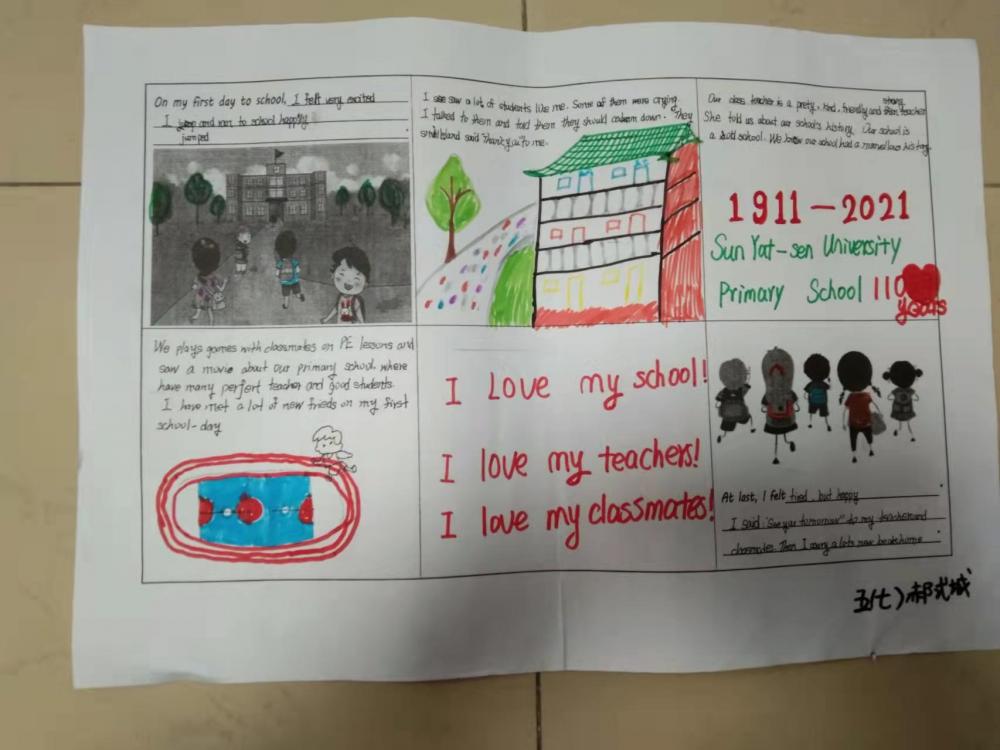 On my first day to school, I felt very excited
I jump and ran to school happily
jumped
I see saw a lot of students like me. Some of them were crying.
I talked to them and told them they should down. They
and said "Thank you" to me.
Our class teacher is a pretty, kind, friendly and teacher
strong
She told us about our school's history. Our school is
a school. We know our school had a marvellous history.
1911-2021
Sun Yat-sen University
Primary School 110
years
We plays games with classmates on PE lessons and
saw a movie about our primary school, where
have many perfert teacher and good students.
I have met a lot of new frieds on my first
school-day
I Love my school!
I love my teachers!
I love my classmates!
At last, I felt tired, but happy
I said: "See you tomorrow" to my teacher and
classmates. Then I carry a lots new books home
五(七)郝弋城